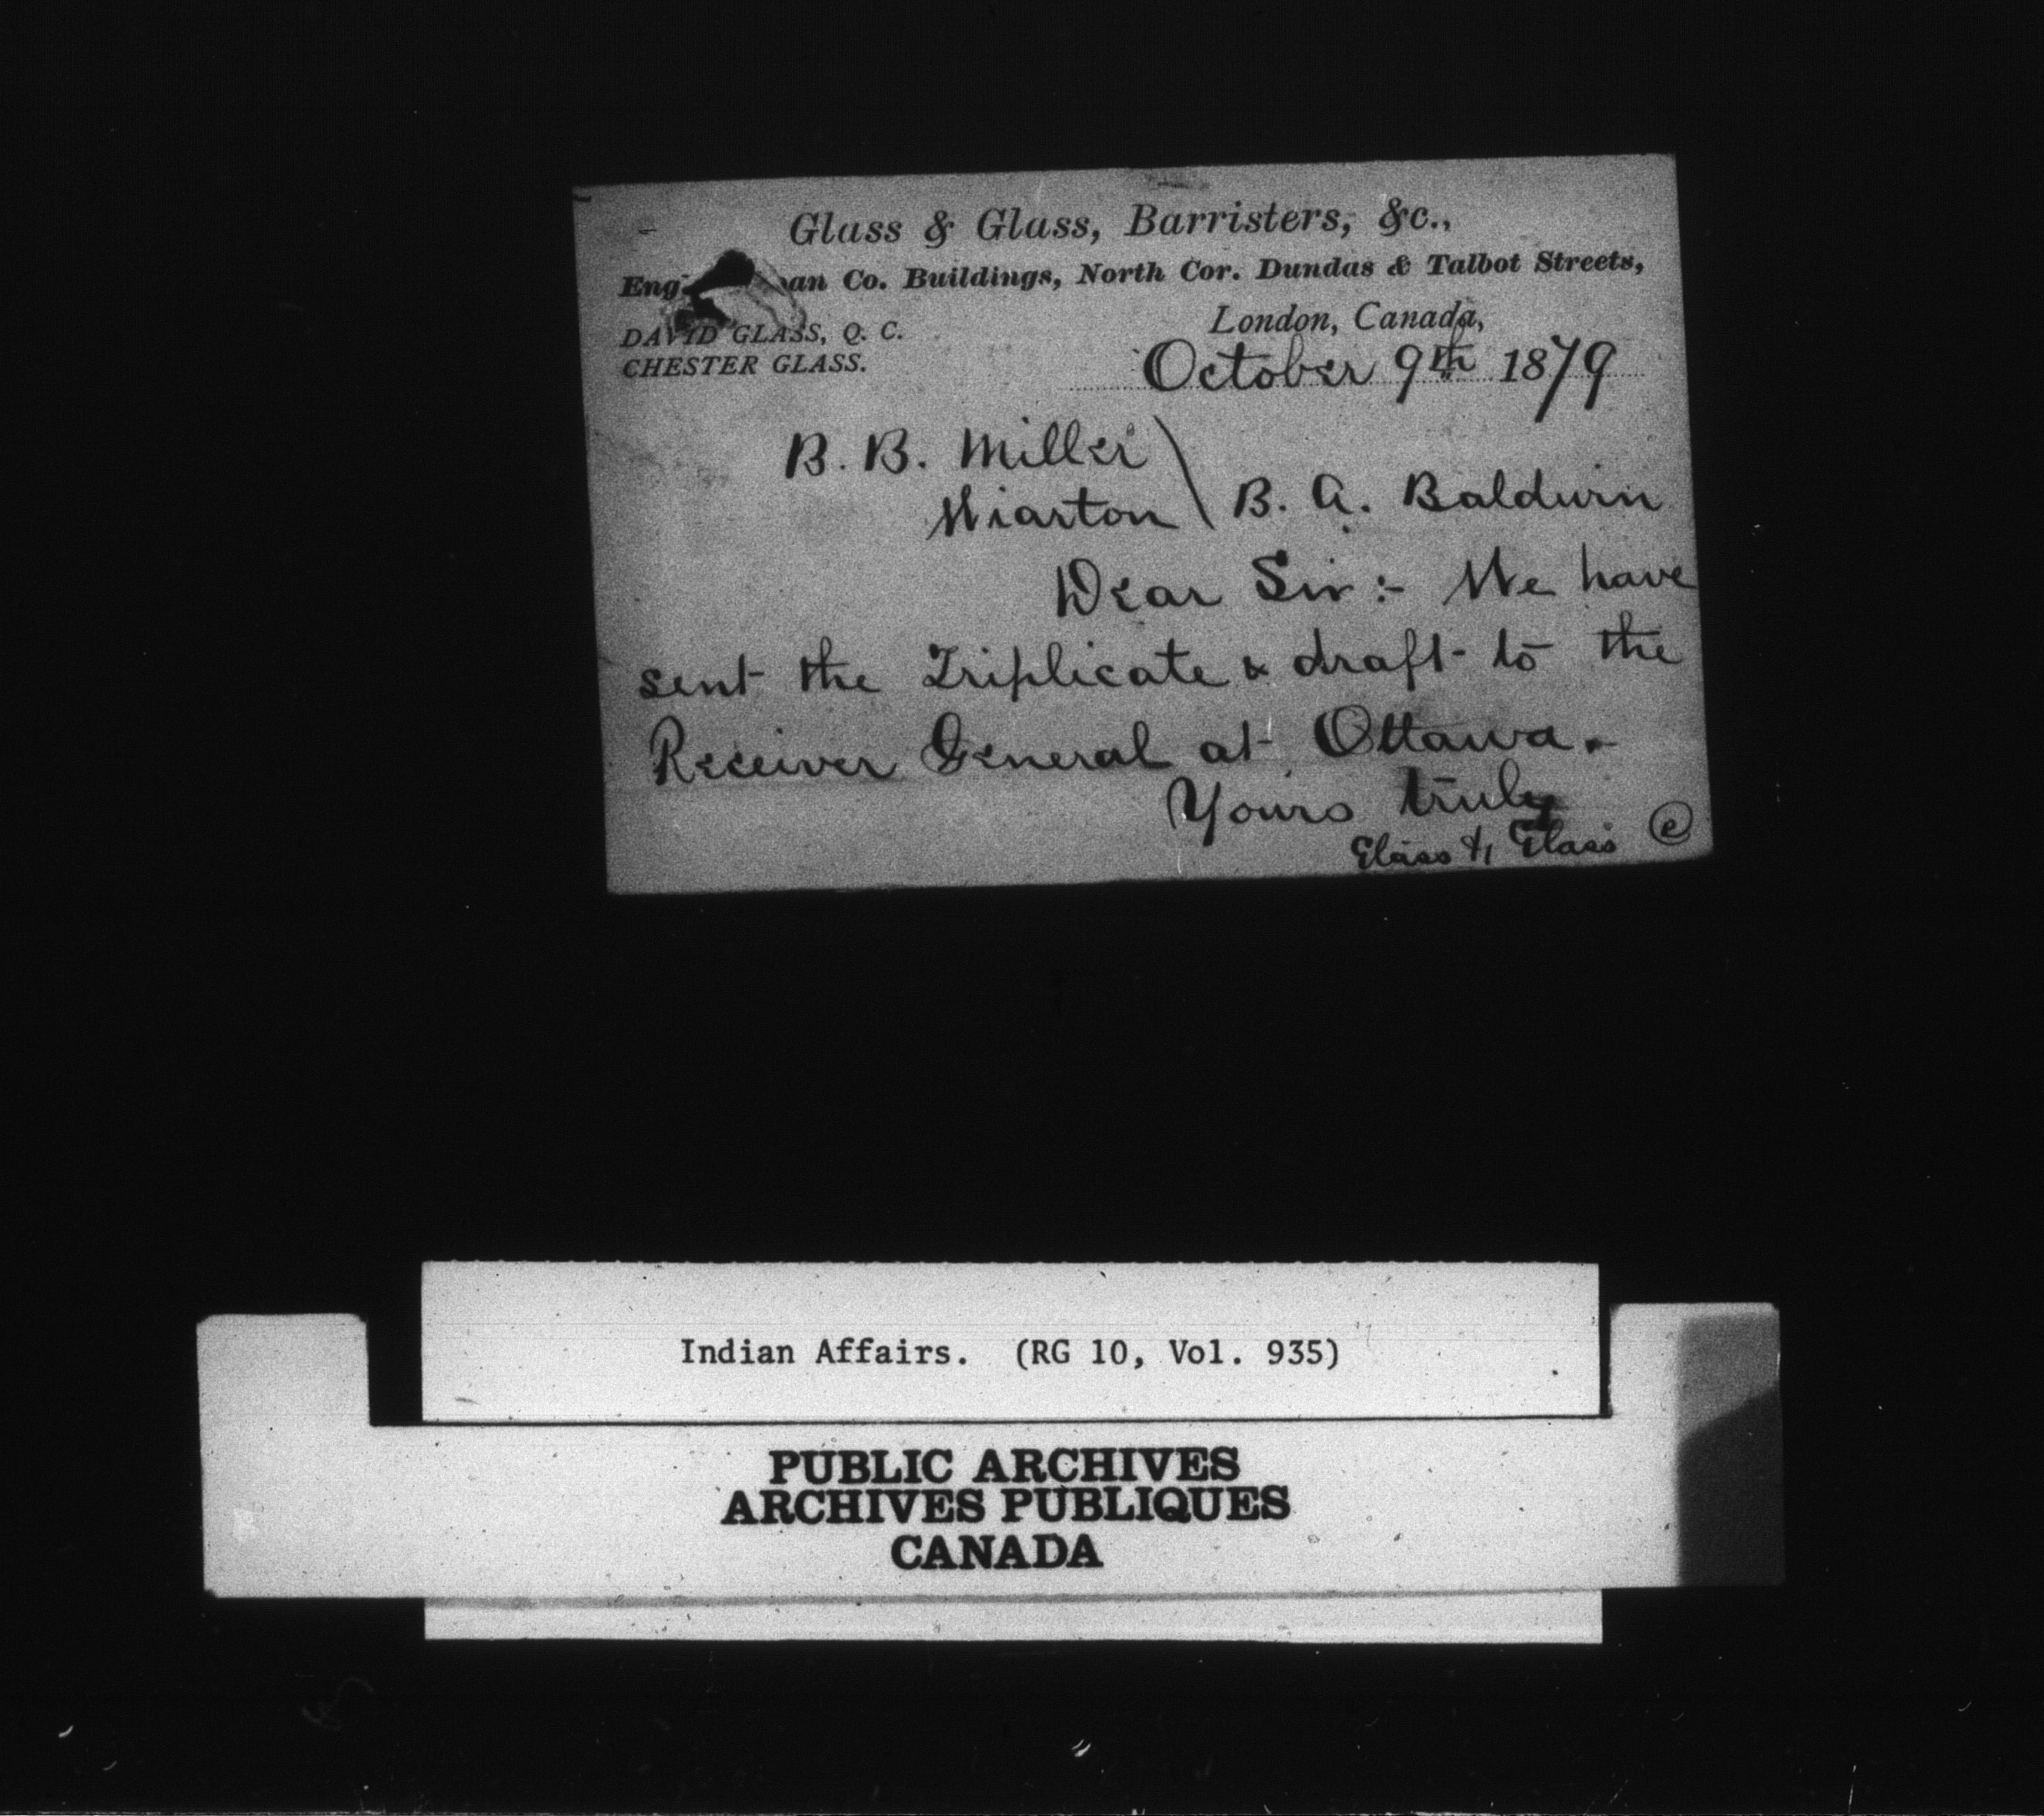 Glass & Glass, Barristers, &c.,
Eng an Co. Buildings, North Cor. Dundas & Talbot Streets,
DAVID GLASS, Q. C.
CHESTER GLASS.
London, Canada,
October 9th 1879
B. B. Miller
Wiarton \ B. A. Baldwin
Dear Sir :- We have
sent the Triplicate & draft to the
Receiver General at Ottawa.
Yours truly
Glass & Glass
e
Indian Affairs. (RG 10, Vol. 935)
PUBLIC ARCHIVES
ARCHIVES PUBLIQUES
CANADA